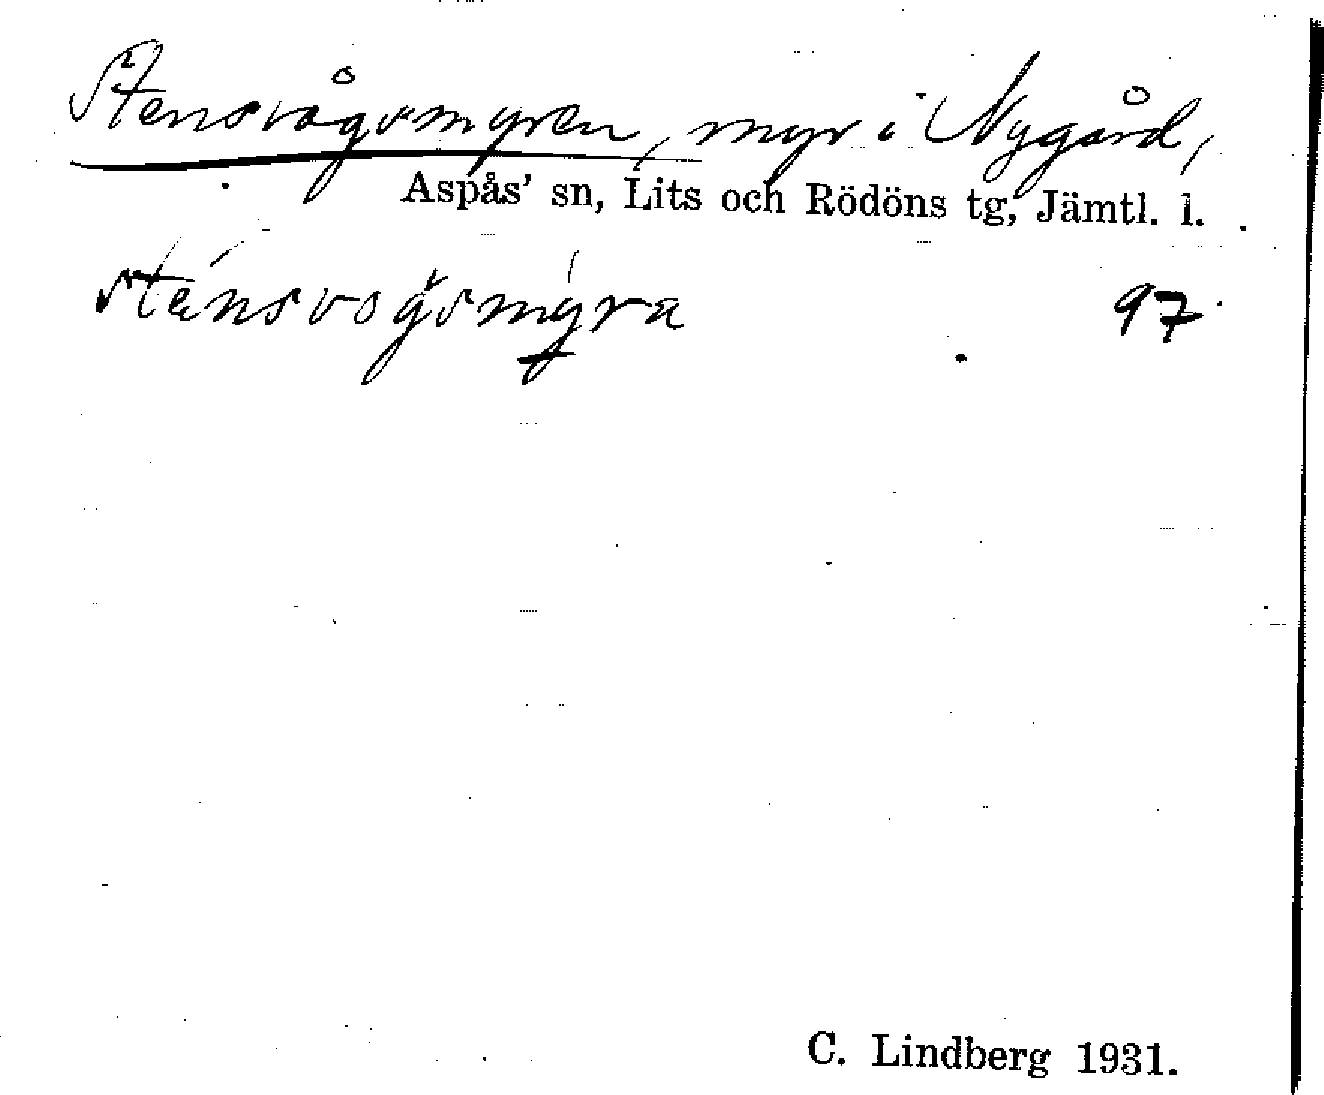 Stensvågsmyren, myr i Nygård,
Aspås' sn, Lits och Rödöns tg, Jämtl. l.
sténsvogsmyra 97
C. Lindberg 1931.